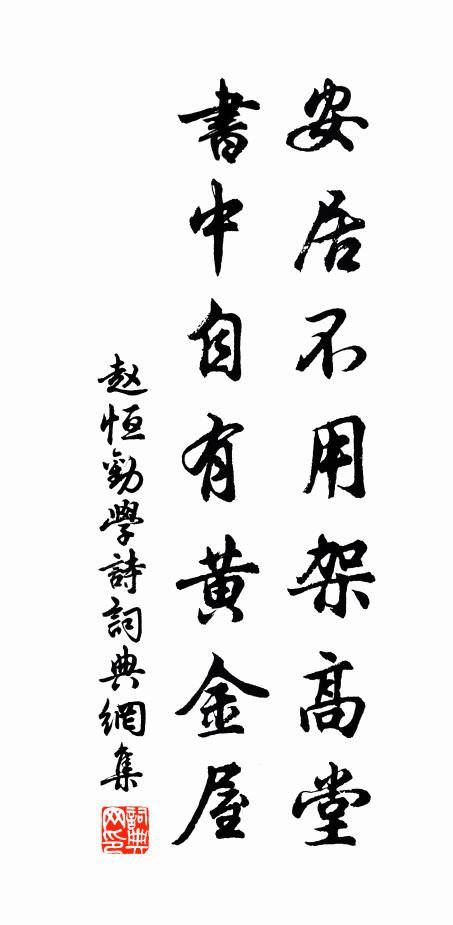 安居不用架高堂
書中自有黄金屋
赵恒勸學詩詞典網集
詞典网印